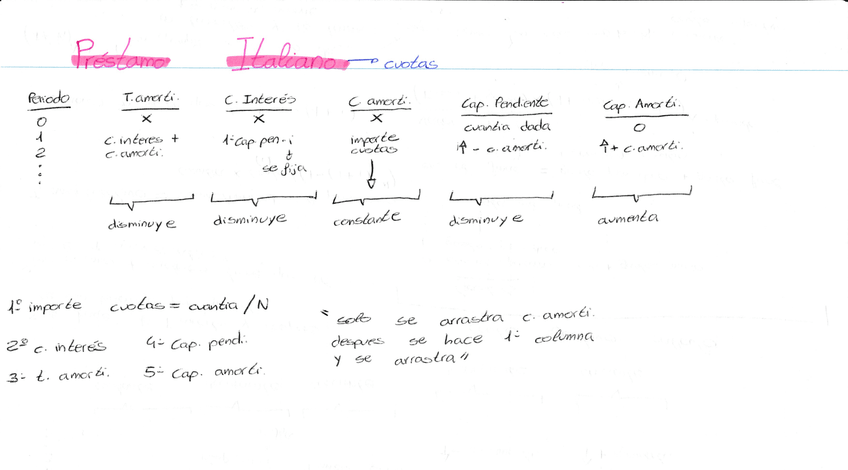 Préstamo Italiano → cuotas
Periodo T.amorti. C. Interés C amorti. Cap. Pendiente Cap. Amorti.
0 x x x cuantia dada 0
1 c. interes + 1-Cap pen-i importe ↑ - c. amorti. ↑ + c. amorti.
2 c. amorti. ↓ cuotas
: se fija ↓
disminuye disminuye constante disminuye aumenta
1º importe cuotas = cuantia / N
2º c. interés 4- Cap. pendi.
3- t. amorti. 5- Cap. amorti.
" solo se arrastra c. amorti.
despues se hace 1- columna
y se arrastra "